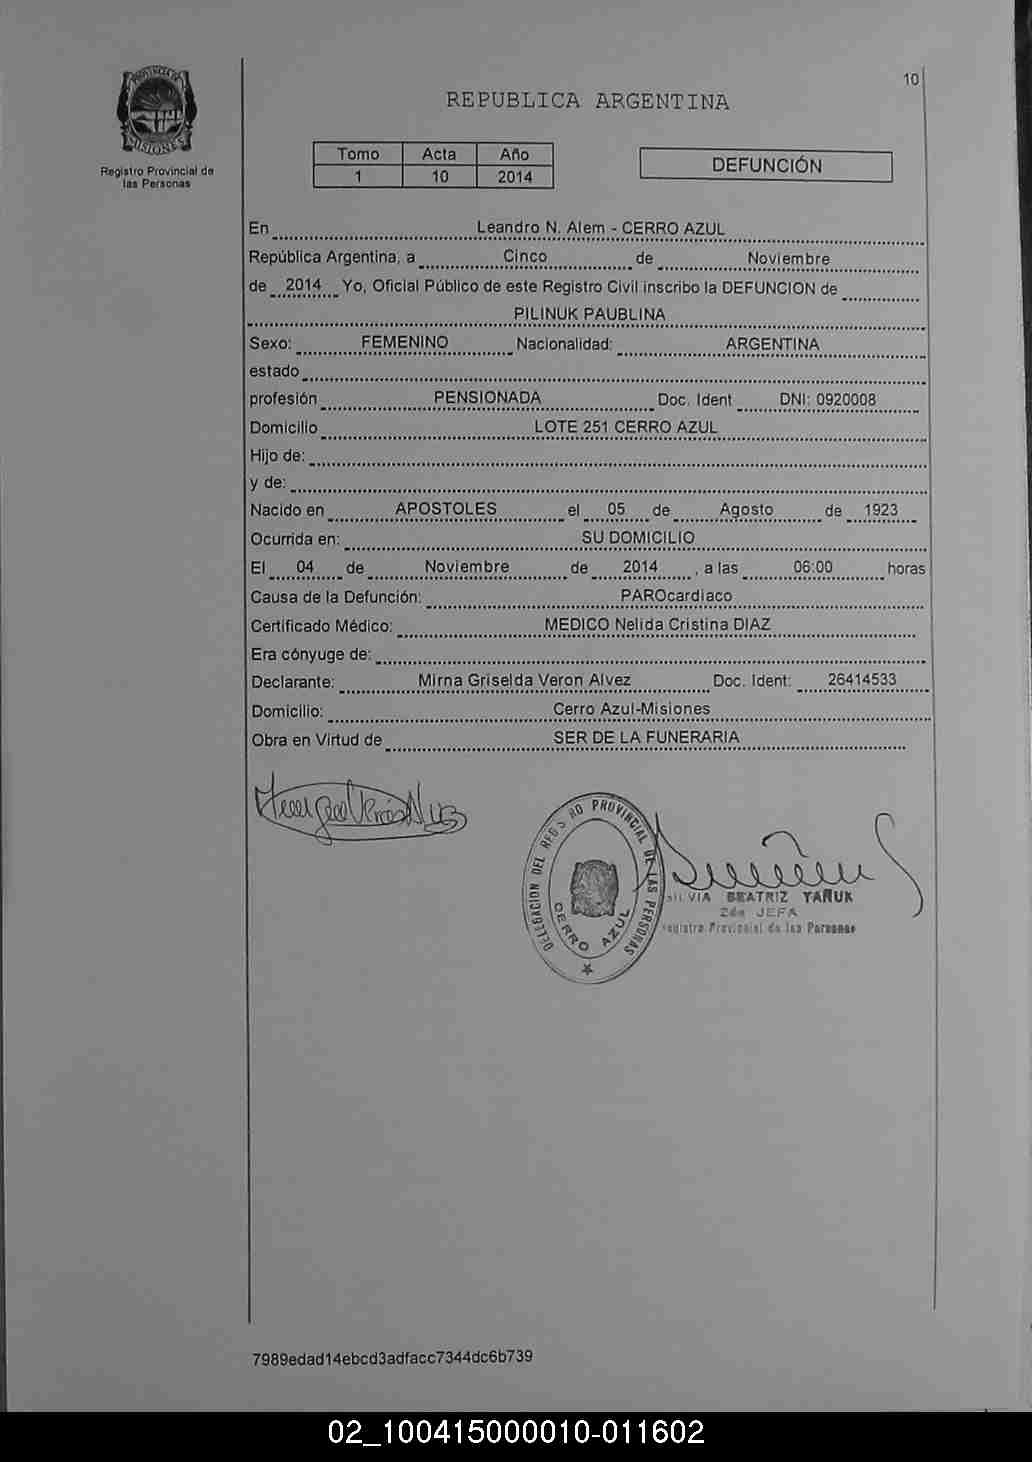 10
REPUBLICA ARGENTINA
PROVINCIA DE
MISIONES
Registro Provincial de
las Personas
Tomo Acta Año
1 10 2014
DEFUNCIÓN
En Leandro N. Alem - CERRO AZUL
República Argentina, a Cinco de Noviembre
de 2014 Yo, Oficial Público de este Registro Civil inscribo la DEFUNCION de
PILINUK PAUBLINA
Sexo: FEMENINO Nacionalidad: ARGENTINA
estado
profesión PENSIONADA Doc. Ident DNI: 0920008
Domicilio LOTE 251 CERRO AZUL
Hijo de:
y de:
Nacido en APOSTOLES el 05 de Agosto de 1923
Ocurrida en: SU DOMICILIO
El 04 de Noviembre de 2014 , a las 06:00 horas
Causa de la Defunción: PAROcardiaco
Certificado Médico: MEDICO Nelida Cristina DIAZ
Era cónyuge de:
Declarante: Mirna Griselda Veron Alvez Doc. Ident: 26414533
Domicilio: Cerro Azul-Misiones
Obra en Virtud de SER DE LA FUNERARIA
DELEGACION DEL REGISTRO PROVINCIAL DE LAS PERSONAS
CERRO AZUL
SILVIA BEATRIZ YAÑUK
2da JEFA
Registro Provincial de las Personas
7989edad14ebcd3adfacc7344dc6b739
02_100415000010-011602